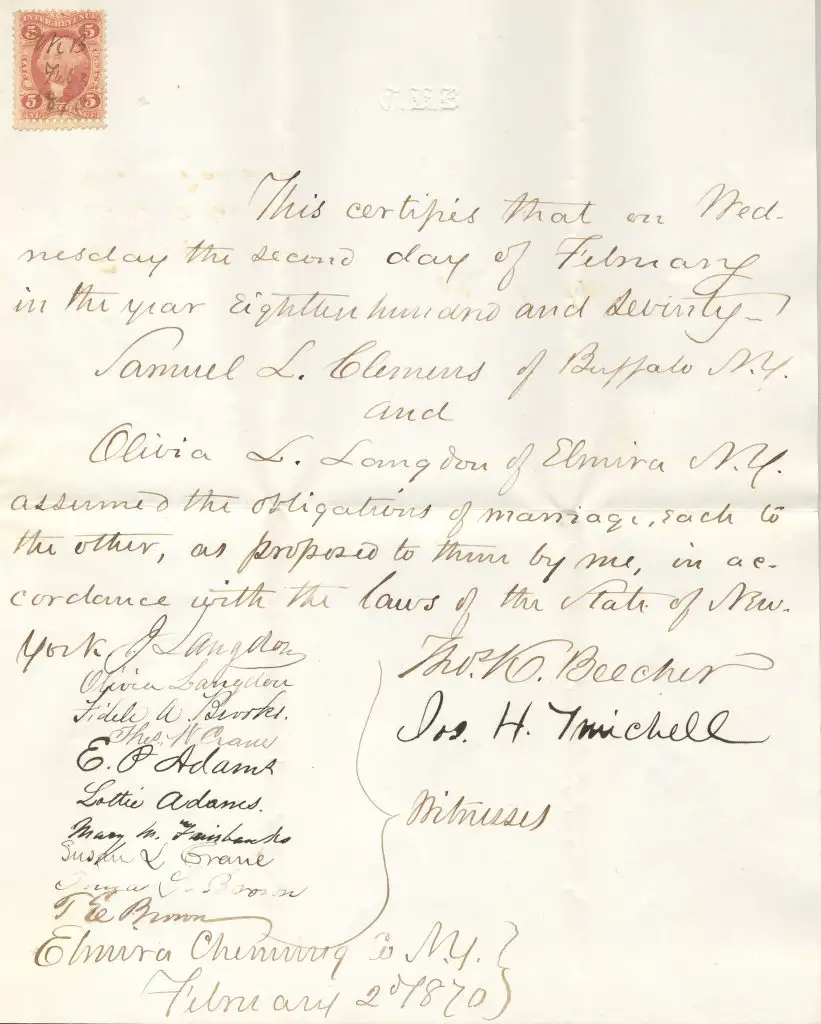 5 5
WKB
Feb 2
5 5
This certifies that on Wed-
nesday the second day of February
in the year Eighteen hundred and seventy-
Samuel L. Clemens of Buffalo N.Y.
and
Olivia L. Langdon of Elmira N.Y.
assumed the obligations of marriage, each to
the other, as proposed to them by me, in ac-
cordance with the laws of the State of New-
York
J Langdon
Olivia Langdon
Fidele A Brooks.
Theo. W Crane
E. P Adams
Lottie Adams.
Mary M. Fairbanks
Susan L Crane
Brown
T E Brown
Thos. K. Beecher
Jos. H. Twichell
Witnesses
Elmira Chemung Co N.Y.
February 2d 1870